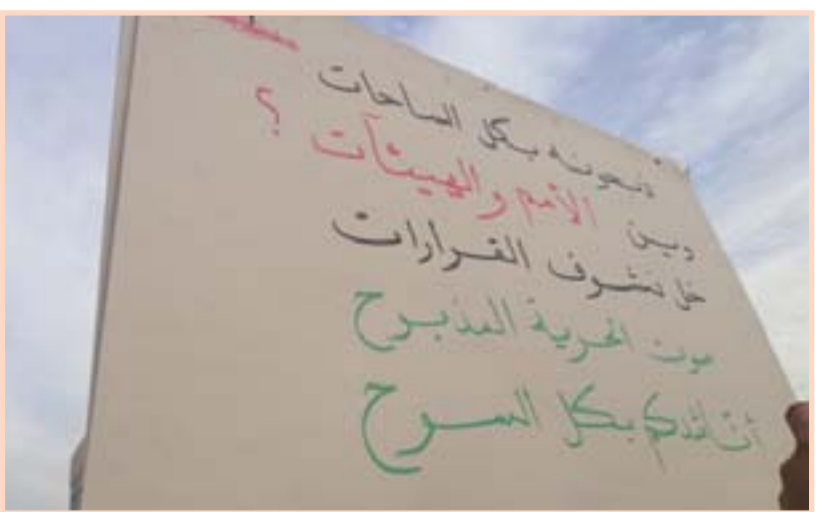 بكل الساحات
وين الأمم والهيئات ؟
خل نشوف القرارات
صوت الحرية المذبوح
أناشدكم بكل السوح